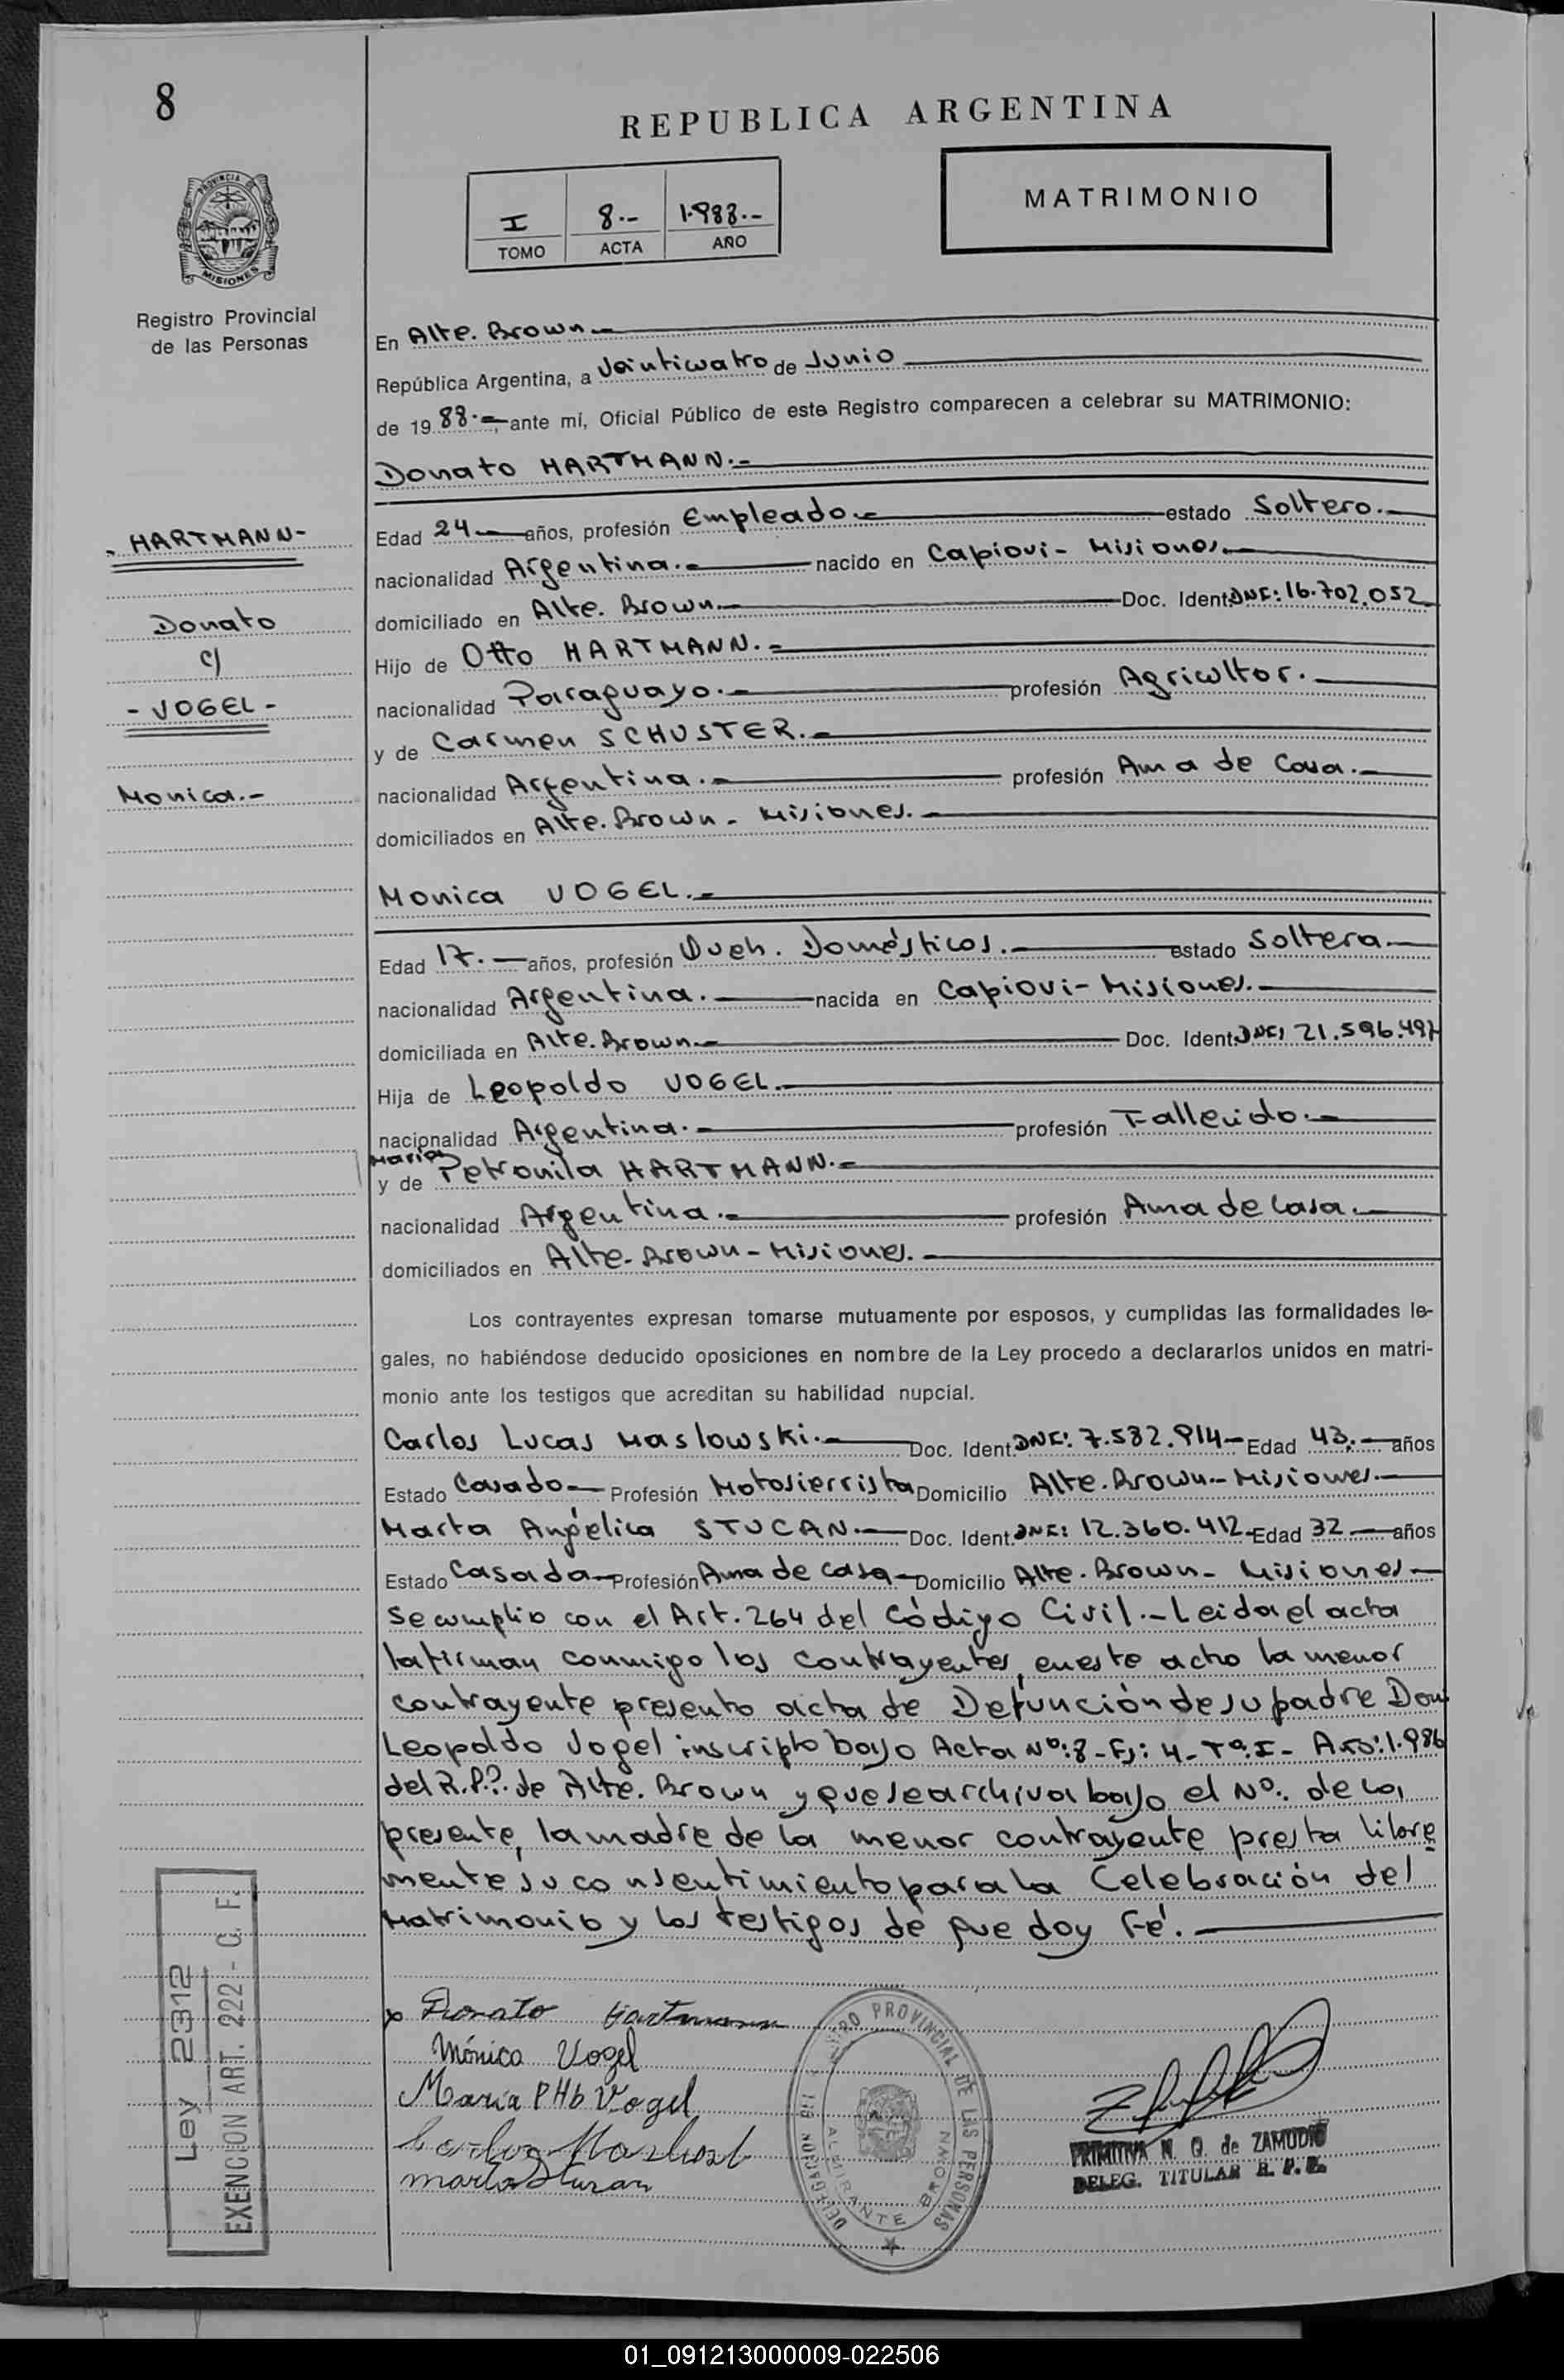 8
REPUBLICA ARGENTINA
PROVINCIA DE
MISIONES
Registro Provincial
de las Personas
I 8.- 1.988.-
TOMO ACTA AÑO
MATRIMONIO
En Alte. Brown.-
República Argentina, a Veinticuatro de Junio
de 19 88.-, ante mí, Oficial Público de este Registro comparecen a celebrar su MATRIMONIO:
Donato HARTMANN.-
- HARTMANN-
Donato
c/
- VOGEL -
Monica.-
Edad 24.- años, profesión Empleado.- estado Soltero.-
nacionalidad Argentina.- nacido en Capiovi- Misiones.-
domiciliado en Alte. Brown.- Doc. Ident. DNI: 16.702.052
Hijo de Otto HARTMANN.-
nacionalidad Paraguayo.- profesión Agricultor.-
y de Carmen SCHUSTER.-
nacionalidad Argentina.- profesión Ama de Casa.-
domiciliados en Alte. Brown - Misiones.-
Monica VOGEL.-
Edad 17.- años, profesión Queh. Domésticos.- estado Soltera.-
nacionalidad Argentina.- nacida en Capiovi- Misiones.-
domiciliada en Alte. Brown.- Doc. Ident. DNI: 21.596.497
Hija de Leopoldo VOGEL.-
nacionalidad Argentina.- profesión Fallecido.-
Maria
y de Petronila HARTMANN.-
nacionalidad Argentina.- profesión Ama de Casa.-
domiciliados en Alte. Brown - Misiones.-
Los contrayentes expresan tomarse mutuamente por esposos, y cumplidas las formalidades le-
gales, no habiéndose deducido oposiciones en nombre de la Ley procedo a declararlos unidos en matri-
monio ante los testigos que acreditan su habilidad nupcial.
Carlos Lucas Maslowski.- Doc. Ident. DNI: 7.582.914- Edad 43.- años
Estado Casado- Profesión Motosierrista Domicilio Alte. Brown - Misiones.-
Marta Angélica STUCAN.- Doc. Ident. DNI: 12.360.412- Edad 32.- años
Estado Casada- Profesión Ama de casa- Domicilio Alte. Brown - Misiones-
Se cumplio con el Art. 264 del Código Civil.- Leida el acta
la firman conmigo los contrayentes, en este acto la menor
contrayente presento acta de Defunción de su padre Don
Leopoldo Vogel inscripto bajo Acta Nº: 8- Fj: 4- Tº: I- Año: 1.986
del R.P.P. de Alte. Brown y que se archiva bajo el Nº. de la
presente, la madre de la menor contrayente presta libre
mente su consentimiento para la Celebración del
Matrimonio y los testigos de que doy Fé.
x Donato Hartmann
Mónica Vogel
María P H b Vogel
Ley 2312
EXENCION ART. 222 - C. F.
REGISTRO PROVINCIAL DE LAS PERSONAS
DELEGACION
ALMIRANTE BROWN
PRIMITIVA N. Q. de ZAMUDIO
DELEG. TITULAR R. P. P.
01_091213000009-022506